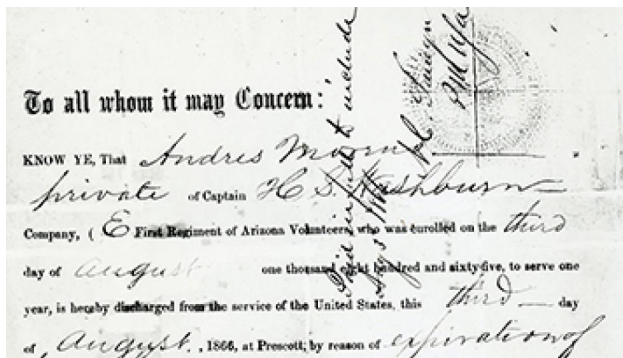 To all whom it may Concern:
KNOW YE, That Andres
private of Captain H. S. Washburn
Company, ( E First Regiment of Arizona Volunteers, who was enrolled on the third
day of august one thousand eight hundred and sixty-five, to serve one
year, is hereby discharged from the service of the United States, this third day
of August, 1866, at Prescott, by reason of expiration of
Paid in full to include